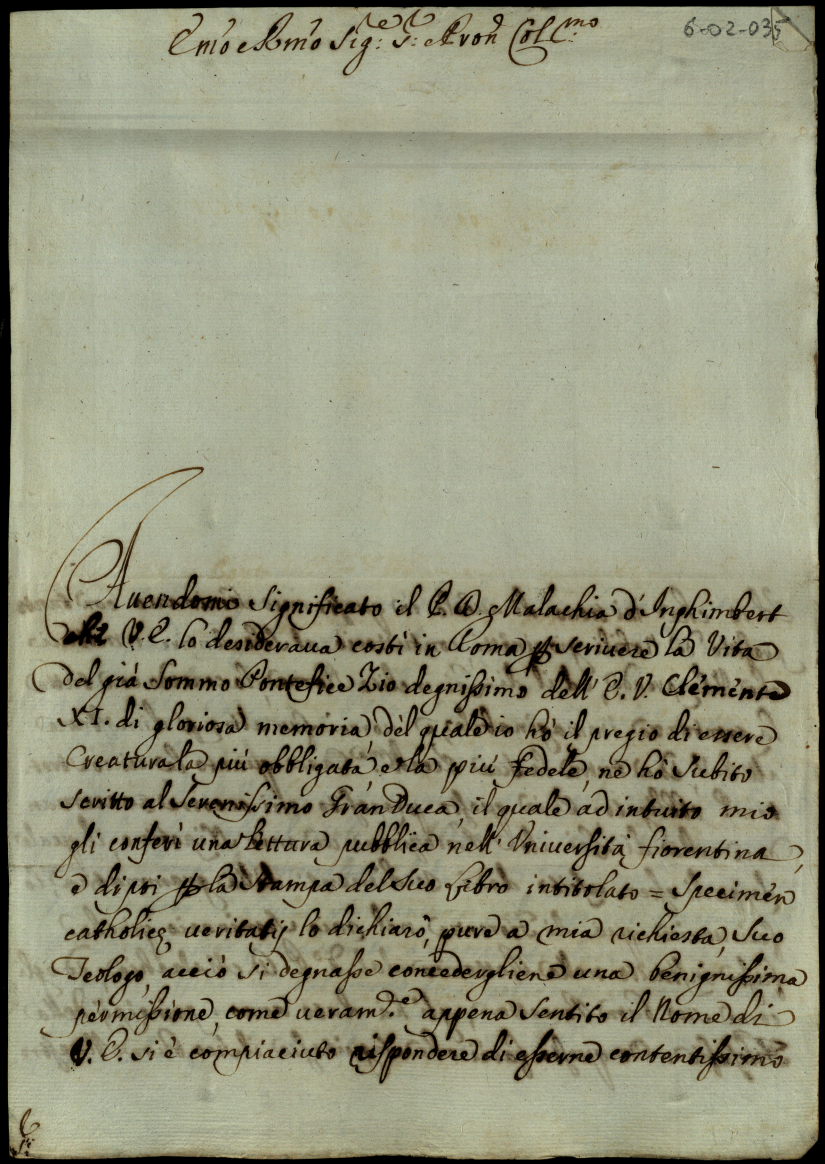 6-02-035
Em̃o e Rm̃o Sig:re S:r e Pron Col:mo
Auendomi significato il P. D. Malachia d'Inghimbert
che V. E. lo desideraua costì in Roma p scriuere la Vita
del già Sommo Pontefice Zio degnissimo dell' E. V. Clemente
XI. di gloriosa memoria, del quale io hò il pregio di essere
Creatura la più obbligata, e la più fedele, ne hò subito
scritto al Serenissimo Gran Duca, il quale ad intuito mio
gli conferì una Lettura pubblica nell' Vniuersità fiorentina,
e di poi p la Stampa del suo Libro intitolato = Specimen
catholicę ueritatis lo dichiarò, pure a mia richiesta, suo
Teologo, acciò si degnasse concedergliene una benignissima
permissione, come ueram.te appena sentito il Nome di
V. E. si è compiaciuto rispondere di esserne contentissimo